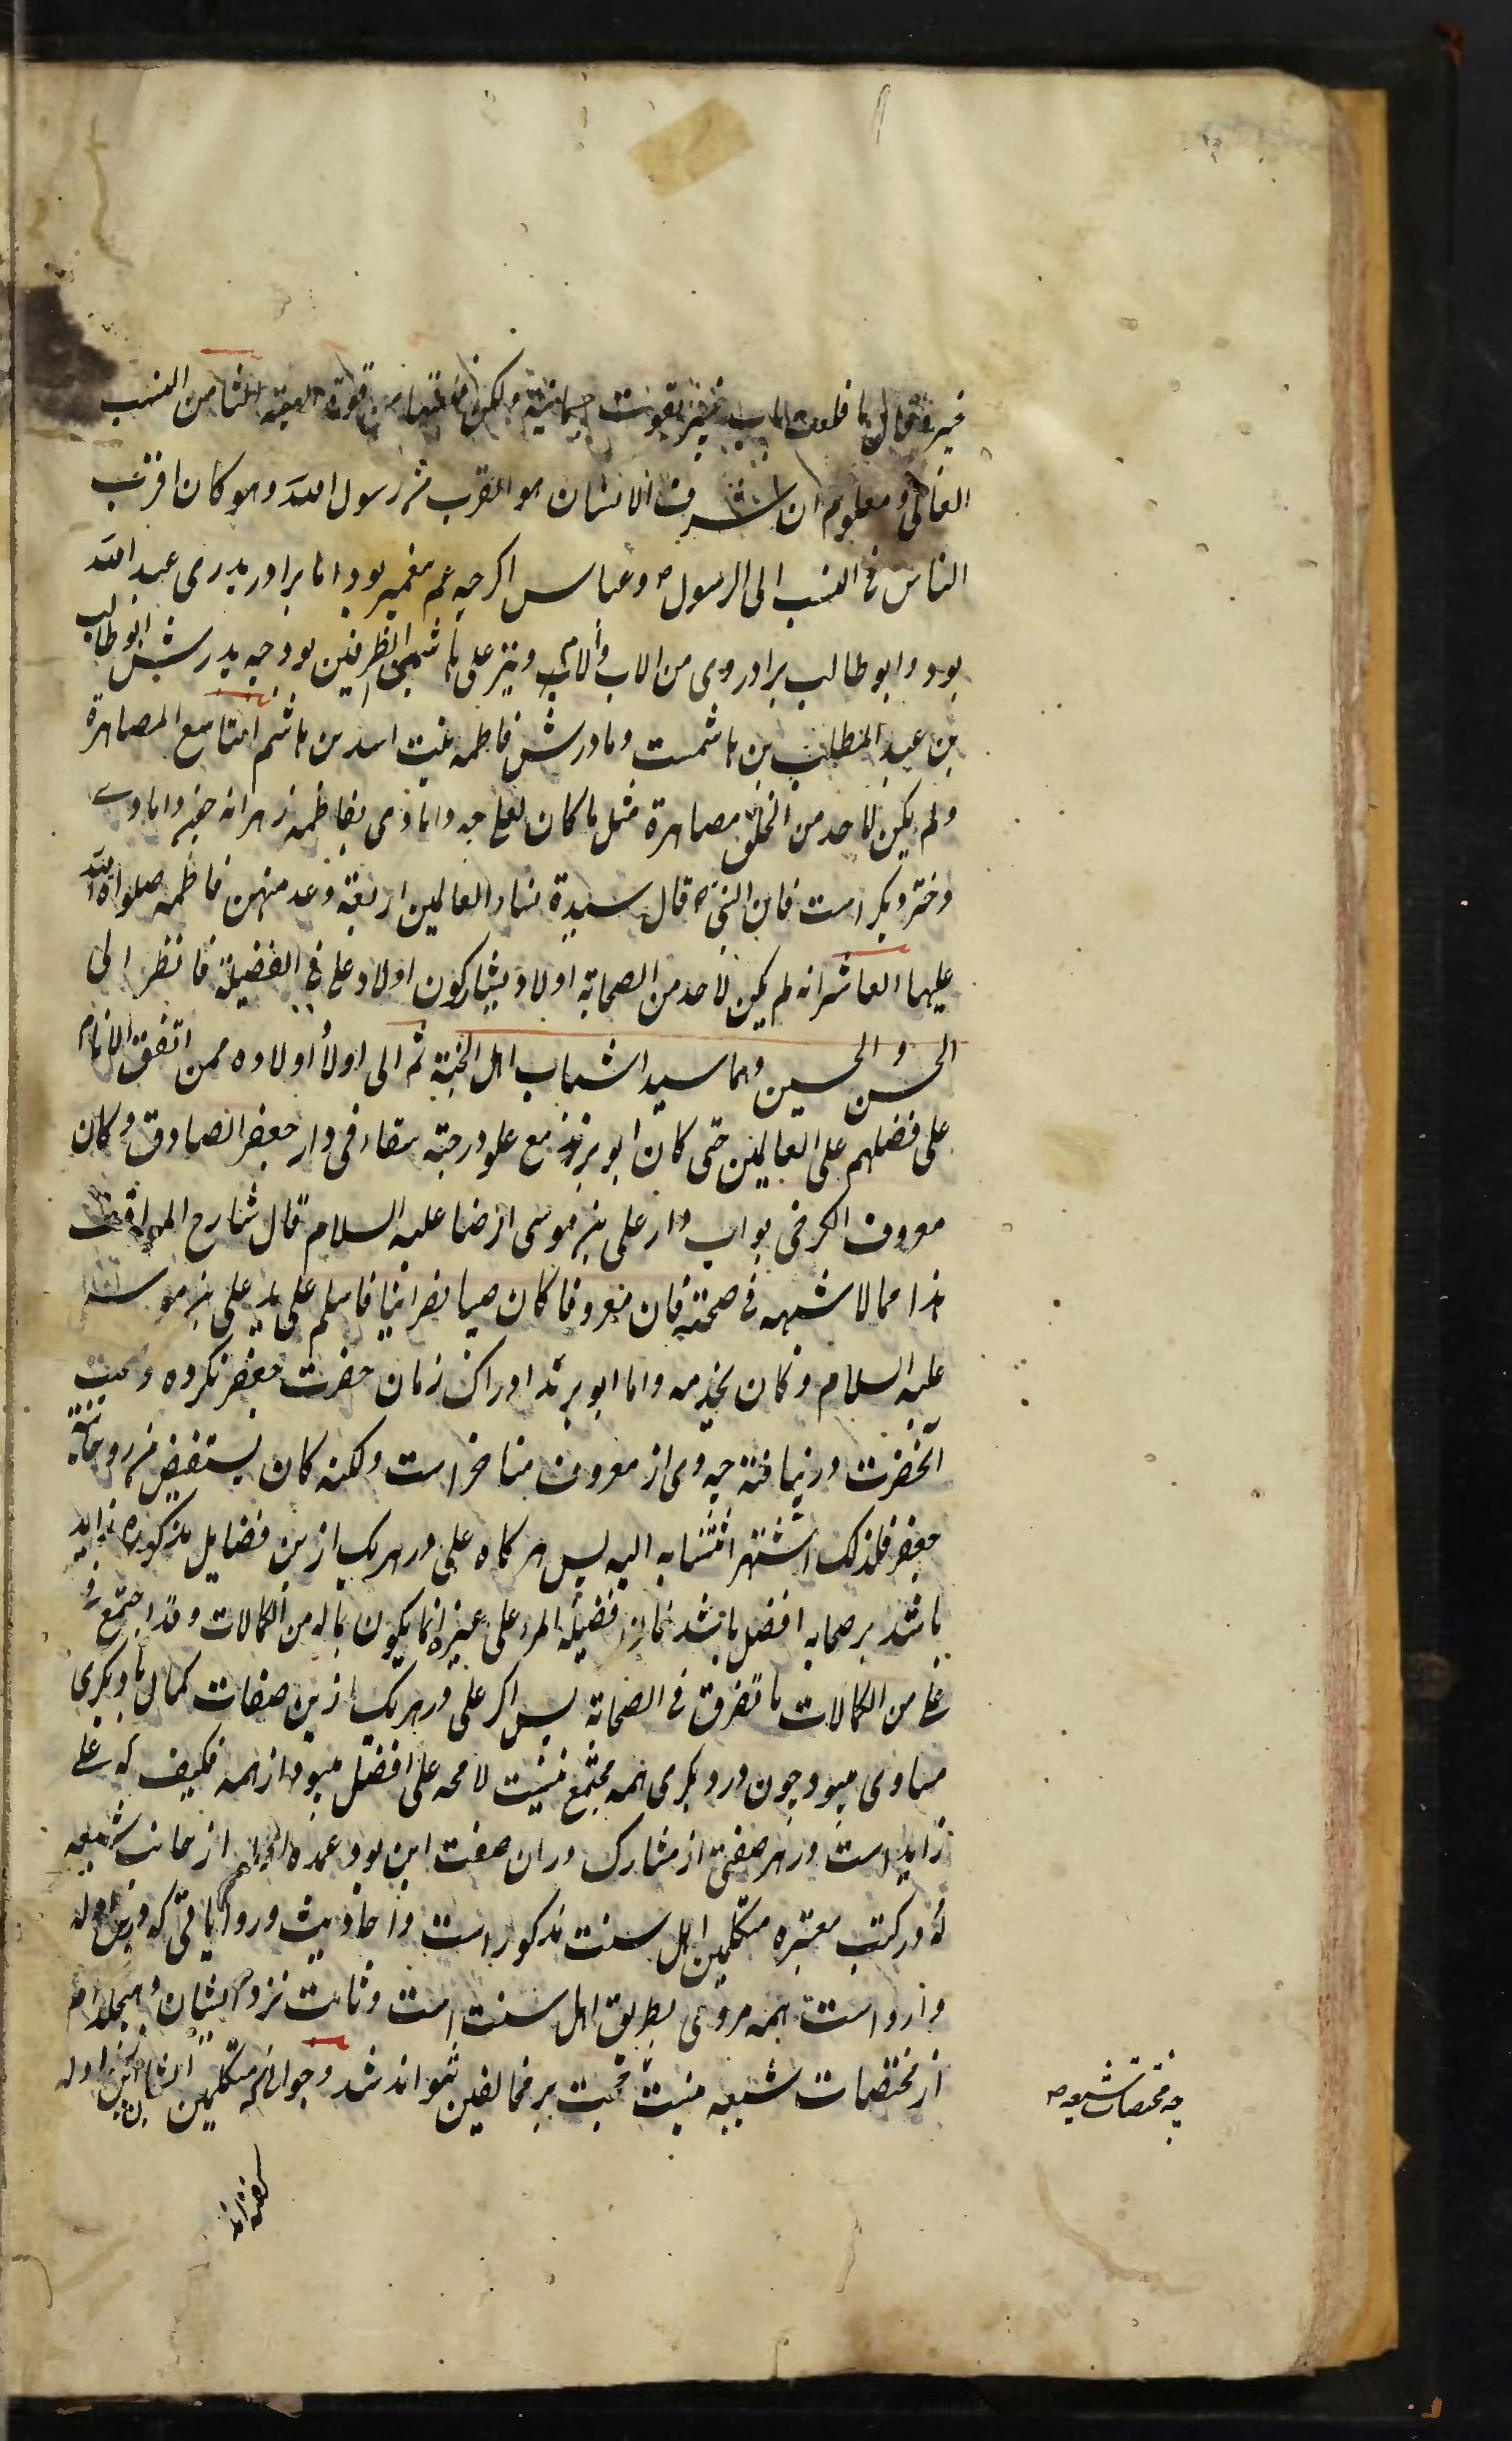 خیبر و قال ما قلعت باب خیبر بقوت جسمانیة ولکن قلعتها بقوة الهیة الثامن النسب
العالی و معلوم ان اشرف الانسان هو القرب من رسول الله و هو کان اقرب
الناس فی النسب الی الرسول ص و عباس اکرچه عم پیغمبر بود اما برادر پدری عبد الله
بود و ابو طالب برادر وی من الاب و الام و نیز علی هاشمی الطرفین بود چه پدرش ابو طالب
بن عبد المطلب بن هاشمست و مادرش فاطمه بنت اسد بن هاشم التاسع المصاهرة
و لم یکن لاحد من الخلق مصاهرة مثل ما کان لعلی چه دامادی بفاطمه زهرا نه چون دامادی
دختر دیکر است فان النبی ص قال سیدة نساء العالمین اربعة و عد منهن فاطمه صلوات الله
علیها العاشر انه لم یکن لاحد من الصحابة اولاد یشارکون اولاد علی فی الفضیلة فانظر الی
الحسن و الحسین و هما سیدا شباب اهل الجنة ثم الی اولاد اولاده ممن اتفق الانام
علی فضلهم علی العالمین حتی کان ابو یزید مع علو درجته سقاء فی دار جعفر الصادق و کان
معروف الکرخی بواب دار علی بن موسی الرضا علیه السلام قال شارح المواقف
هذا مما لا شبهه فی صحته فان معروفا کان صبیا نصرانیا فاسلم علی ید علی بن موسی
علیه السلام و کان یخدمه و اما ابو یزید ادراک زمان حضرت جعفر نکرده و صحبت
آنحضرت در نیافته چه وی از معروف متاخر است ولکنه کان یستفیض من روحانیة
جعفر فلذلک اشتهر انتسابه الیه پس هر کاه علی در هر یک ازین فضایل مذکوره زاید
باشد بر صحابه افضل باشد فان فضیلة المرء علی غیره انما یکون بما له من الکمالات و قد اجتمع فی
علی من الکمالات ما تفرق فی الصحابة پس اکر علی در هر یک ازین صفات کمال با دیکری
مساوی میبود چون در دیکری همه مجتمع نیست لا محه علی افضل میبود از همه فکیف که علی
زاید است در هر صفتی از مشارک در ان صفت این بود عمده از جانب شیعه
که در کتب معتبره متکلمین اهل سنت مذکور است و احادیث و روایاتی که درین ادله
وارد است همه مروی بطریق اهل سنت است و ثابت نزد ایشان و هیچکدام
از مختصات شیعه نیست حجت بر مخالفین نتواند شد و جوابی که متکلمین ایشان ازین ادله
چه مختصات شیعه ص
کفته اند